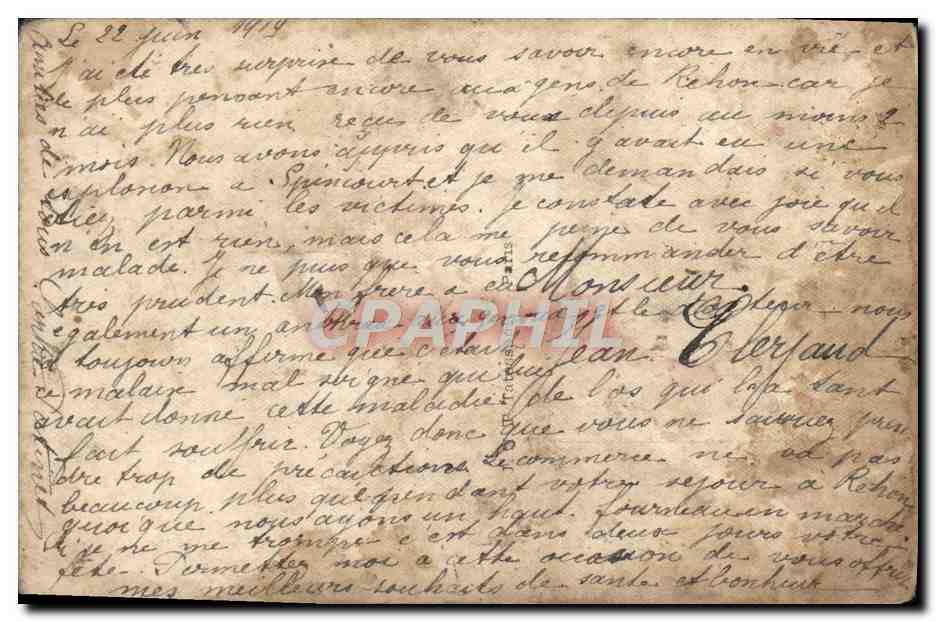 Le 22 juin 1919
J'ai été très surprise de vous savoir encore en vie et
de plus pensant encore aux gens de Rehon car je
n'ai plus rien reçus de vous depuis au moins 2
mois. Nous avons appris qu'il y avait eu une
explosion a Spincourt et je me demandais si vous
étiez parmi les victimes. Je constate avec joie qu'il
n'en est rien, mais cela me peine de vous savoir
malade. Je ne puis que vous recommander d'être
très prudent. Mon frère a eu
Monsieur
également un et le docteur nous
a toujours affirmé que c'était
Jean
ce malaise mal soigné qui lui
avait donné cette maladie de l'os qui l'a tant
fait souffrir. Voyez donc que vous ne sauriez pren
dre trop de précautions. Le commerce ne va pas
beaucoup plus que pendant votre séjour a Rehon
quoique nous ayons un haut fourneau en marche.
Si je ne me trompe c'est dans deux jours votre
fête. Permettez moi a cette occasion de vous offrir
mes meilleurs souhaits de santé et bonheur
Paris
CPAPHIL